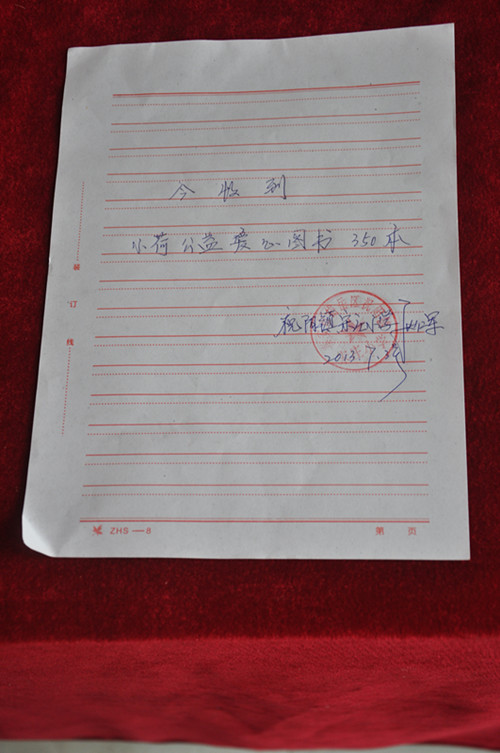 今收到
小荷公益爱心图书350本
祝阳镇
2013.7.
装订线
ZHS—8
第 页